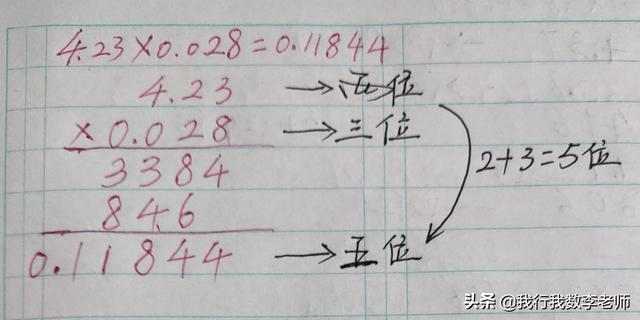 4.23×0.028=0.11844
4.23 → 位
×0.028 → 三位
2+3=5位
3384
846
0.11844 → 五位
头条 @我行我数李老师